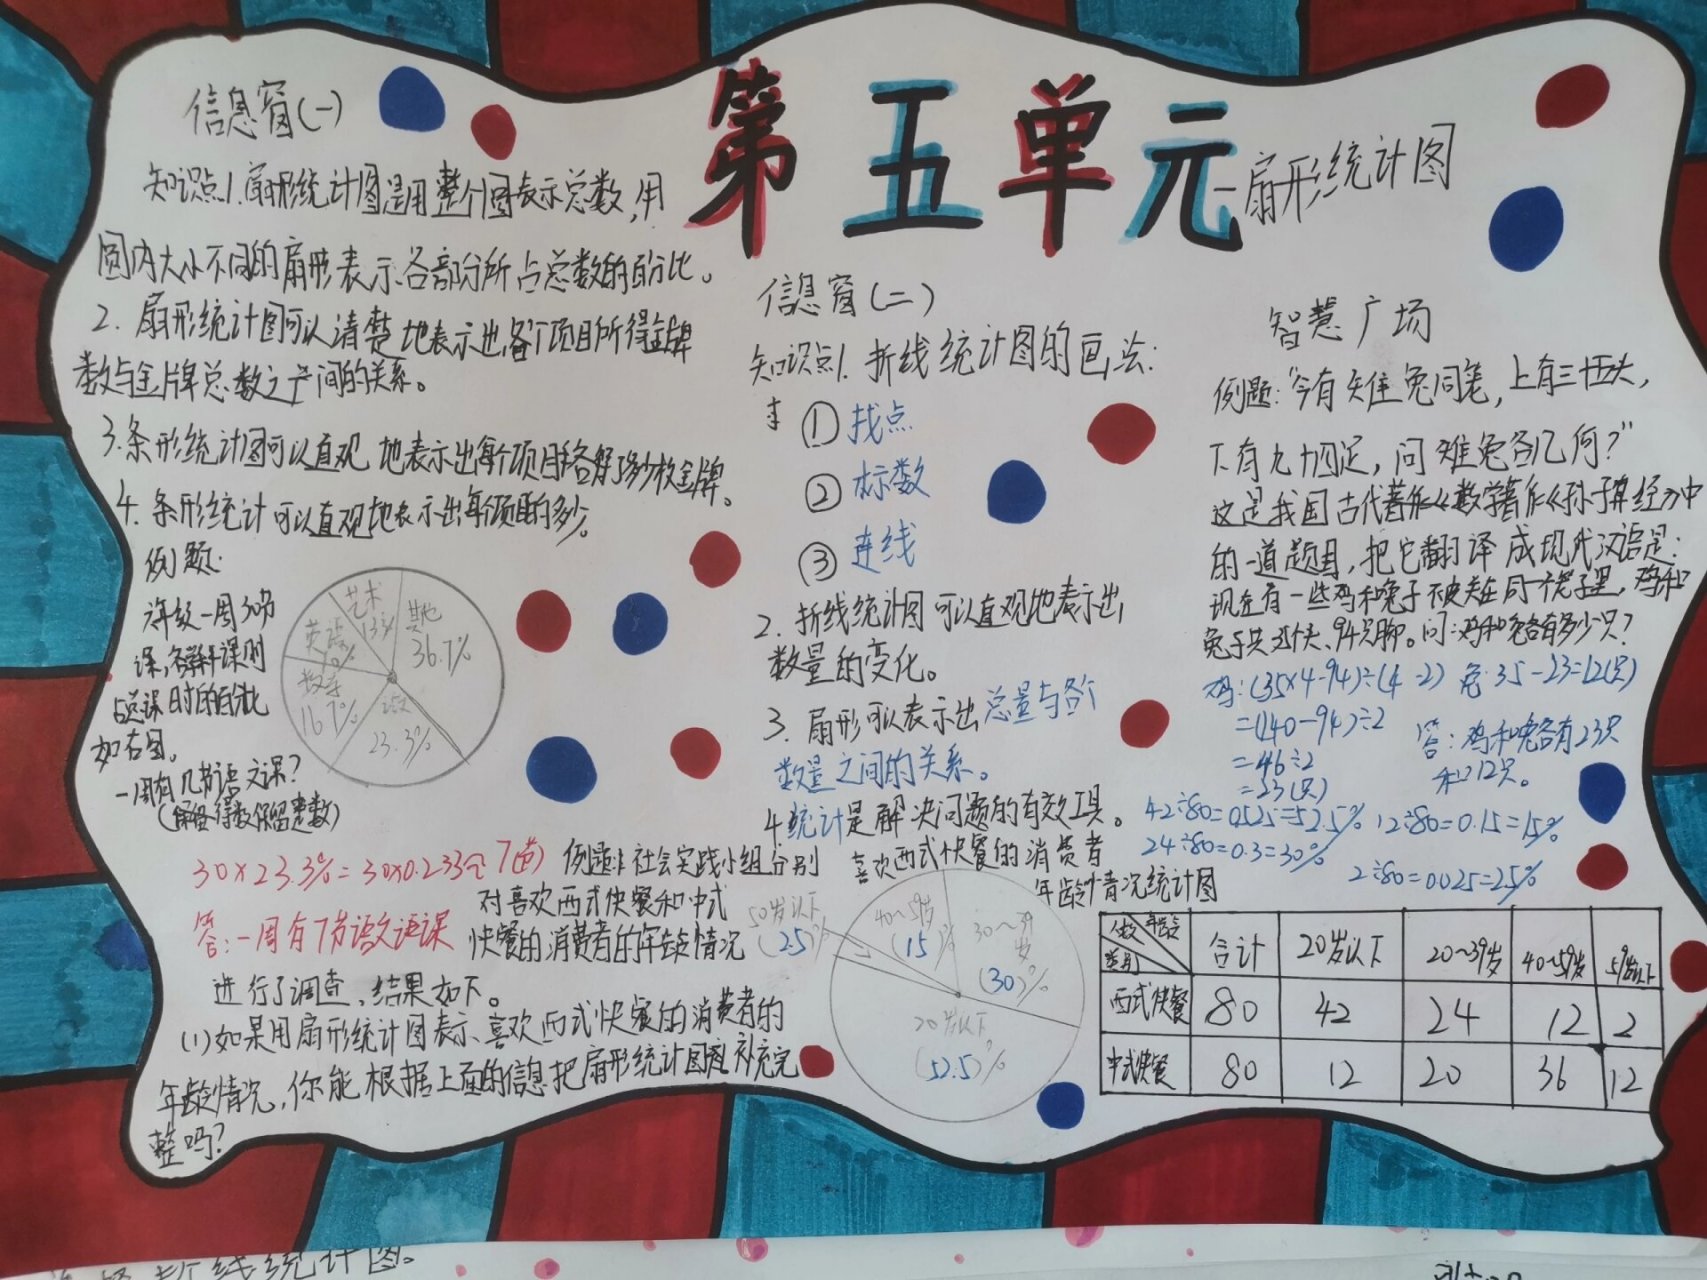 第五单元
-扇形统计图
信息窗(一)
知识点1.扇形统计图是用整个圆表示总数,用
圆内大小不同的扇形表示各部分所占总数的百分比。
2.扇形统计图可以清楚地表示出各个项目所得金牌
数与金牌总数之间的关系。
3.条形统计图可以直观地表示出每个项目各得了多少枚金牌。
4.条形统计可以直观地表示出每个项目的多少。
例题:
一周30节
课,各学科课时
占总课时的百分比
如右图。
一周有几节语文课?
(得数保留整数)
艺术
13%
其他
36.7%
英语
10%
数学
16.7%
语文
23.3%
30×23.3%=30×0.233≈7(节)
答:一周有7节语文课
信息窗(二)
知识点1.折线统计图的画法:
①找点
②标数
③连线
2.折线统计图可以直观地表示出
数量的变化。
3.扇形可以表示出总量与各个
数量之间的关系。
4.统计是解决问题的有效工具。
例题:社会实践小组分别
对喜欢西式快餐和中式
快餐的消费者的年龄情况
进行了调查,结果如下。
(1)如果用扇形统计图表示喜欢西式快餐的消费者的
年龄情况,你能根据上面的信息把扇形统计图补充完
整吗?
喜欢西式快餐的消费者
年龄情况统计图
50岁以下
(2.5)%
40~59岁
(15)%
30~39
岁
(30)%
20岁以下
(52.5)%
智慧广场
例题:“今有雉兔同笼,上有三十五头,
下有九十四足,问雉兔各几何?”
这是我国古代著作《数学著作《孙子算经》中
的一道题目,把它翻译成现代汉语是:
现在有一些鸡和兔子被关在同一个笼子里,鸡和
兔子共35个头、94只脚。问:鸡和兔各有多少只?
鸡:(35×4-94)÷(4-2) 兔:35-23=12(只)
=(140-94)÷2
=46÷2
=23(只)
答:鸡和兔各有23只
和12只。
42÷80=0.525=52.5% 12÷80=0.15=15%
24÷80=0.3=30%
2÷80=0.025=2.5%
人数 年龄 类别 合计 20岁以下 20~39岁 40~59岁 59岁以下
西式快餐 80 42 24 12 2
中式快餐 80 12 20 36 12
折线统计图。